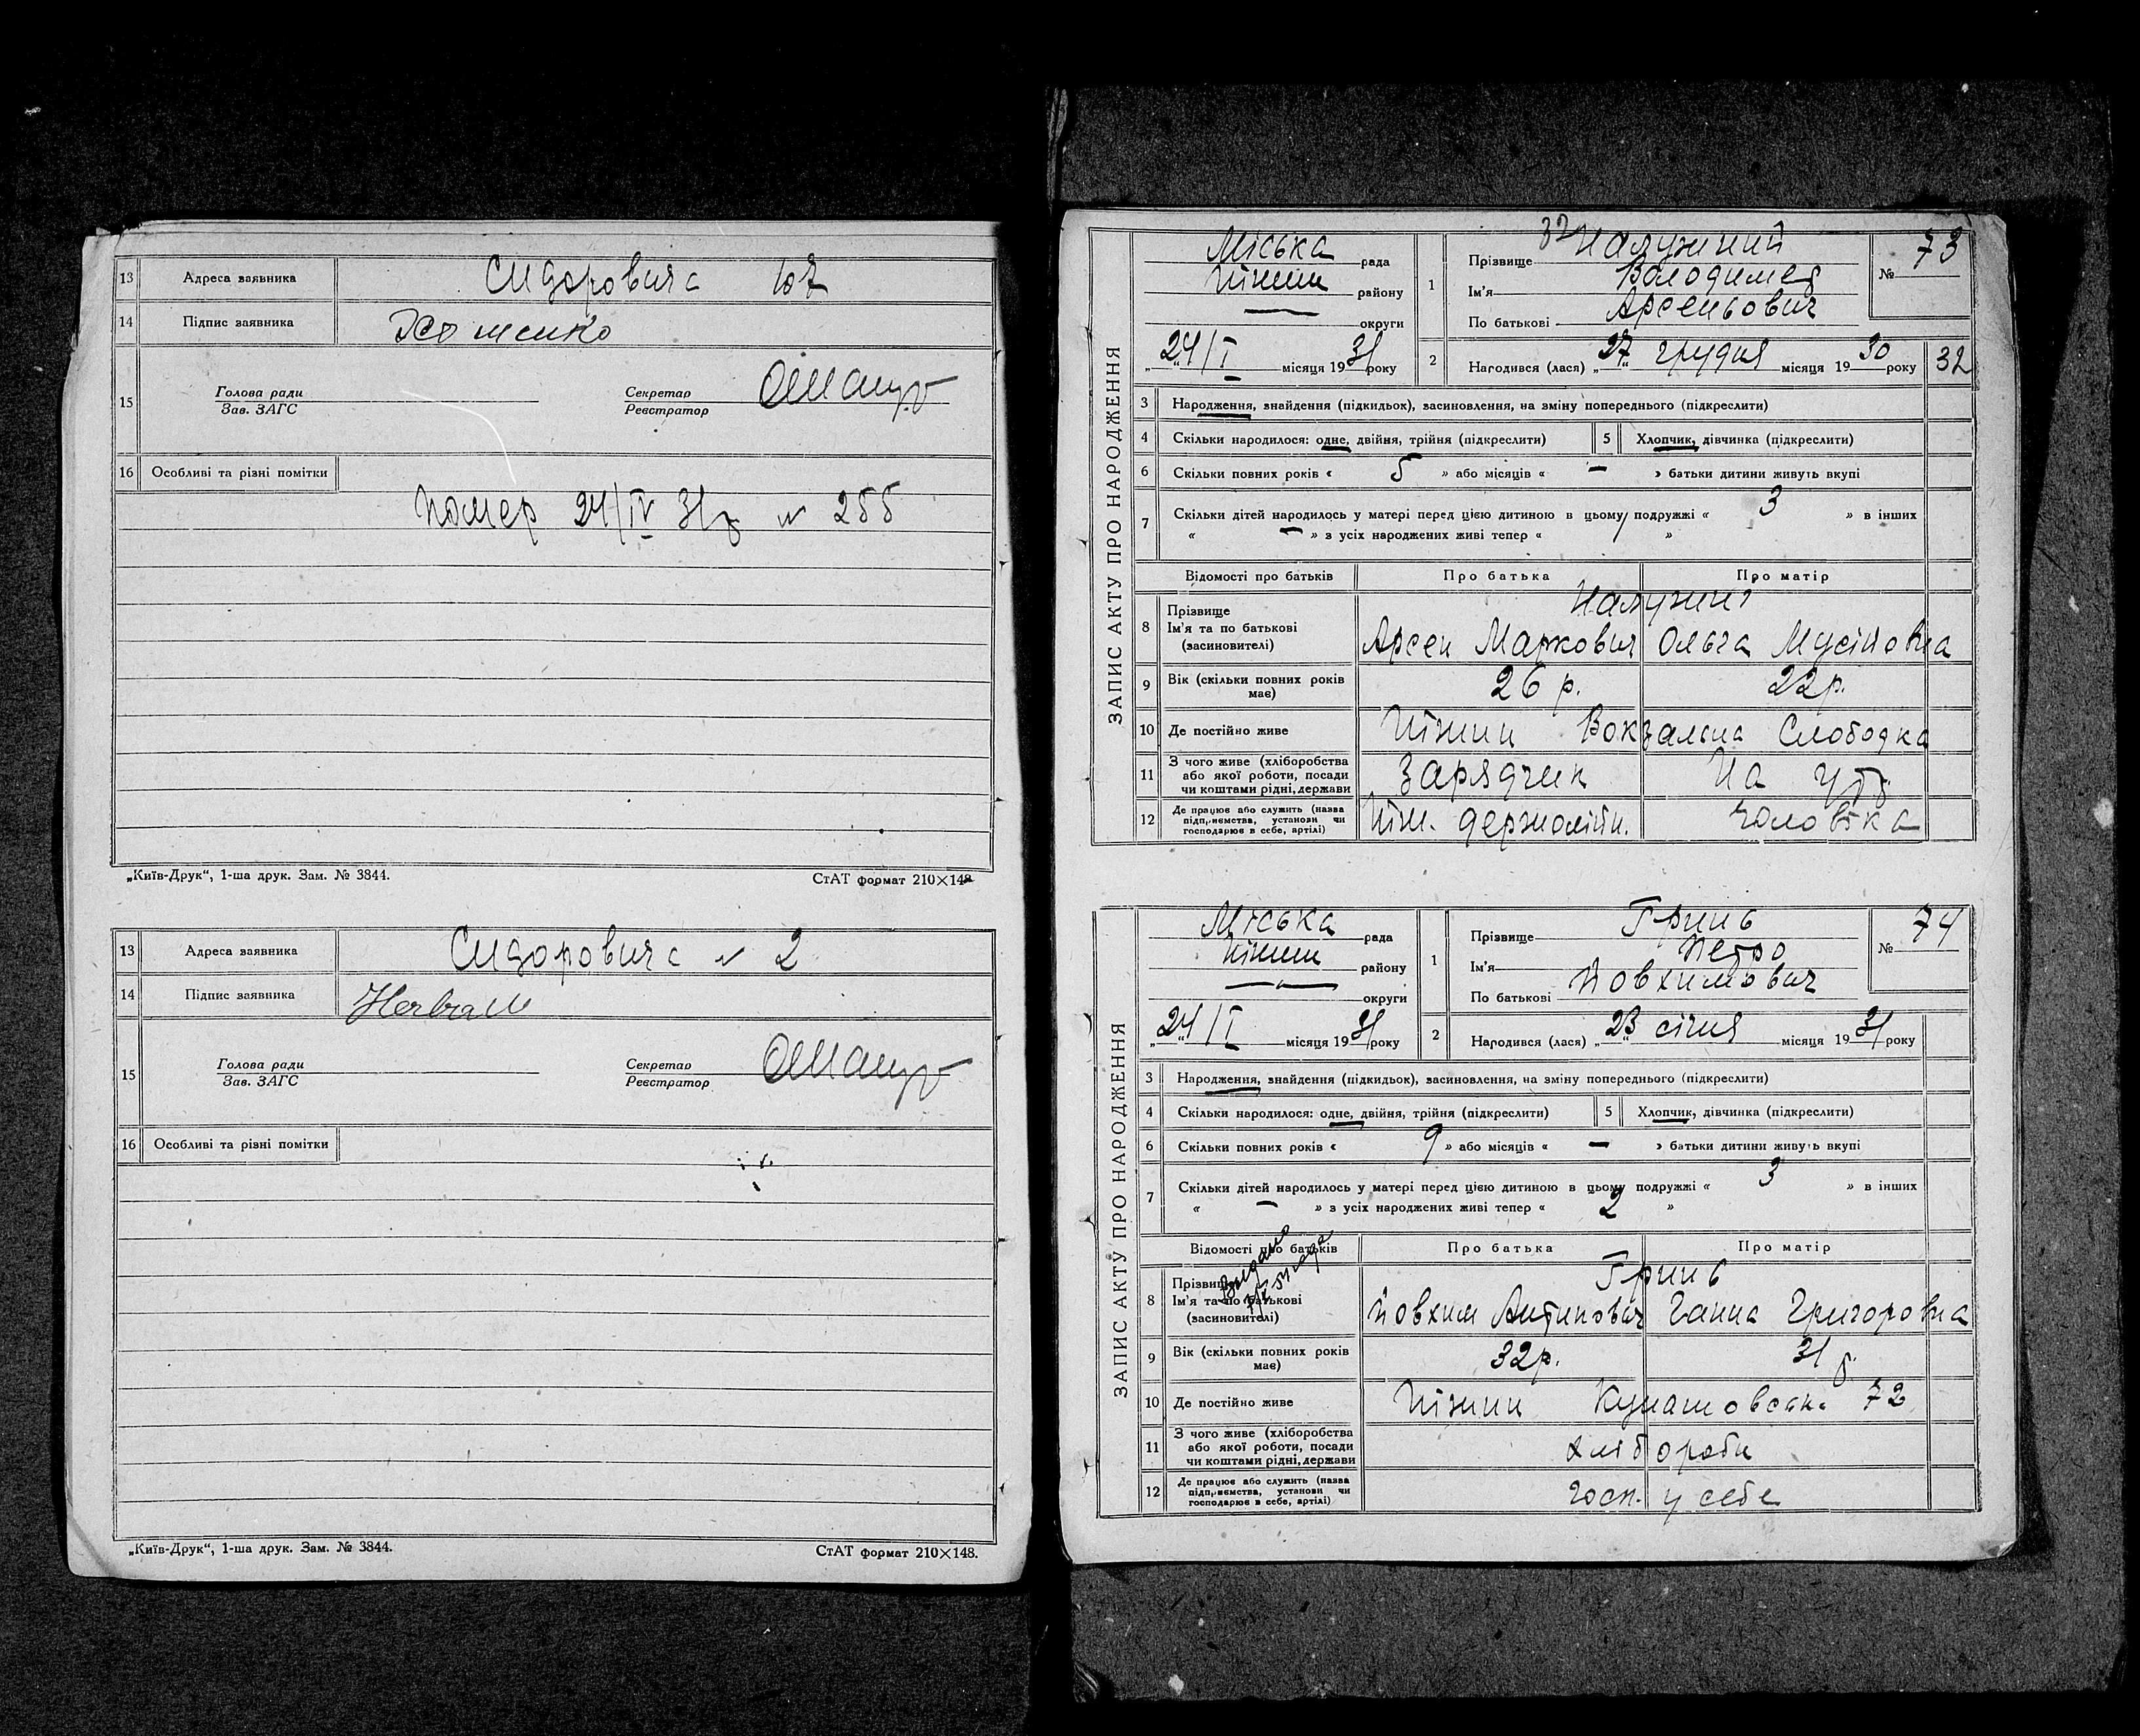 13 Адреса заявника Сидоровича 107
14 Підпис заявника Хоменко
15 Голова ради
Зав. ЗАГС
Секретар
Реєстратор
16 Особливі та різні помітки
Помер 24/IV 31р № 255
„Київ-Друк“, 1-ша друк. Зам. № 3844. СтАТ формат 210×148
13 Адреса заявника Сидоровича № 2
14 Підпис заявника
15 Голова ради
Зав. ЗАГС
Секретар
Реєстратор
16 Особливі та різні помітки
„Київ-Друк“, 1-ша друк. Зам. № 3844. СтАТ формат 210×148.
ЗАПИС АКТУ ПРО НАРОДЖЕННЯ
Міська рада
Ніжин району
округи
„24/I місяця 1931 року
32
1 Прізвище
Ім'я Володимер
По батькові Арсеньович
№ 73
2 Народився (лася) „27“ грудня місяця 1930 року 32
3 Народження, знайдення (підкидьок), засиновлення, на зміну попереднього (підкреслити)
4 Скільки народилося: одне, двійня, трійня (підкреслити) 5 Хлопчик, дівчинка (підкреслити)
6 Скільки повних років « 5 » або місяців « — » батьки дитини живуть вкупі
7 Скільки дітей народилось у матері перед цією дитиною в цьому подружжі « 3 » в інших
« — » з усіх народжених живі тепер « »
Відомості про батьків Про батька Про матір
8 Прізвище
Ім'я та по батькові Арсен Маркович Ольга Мусіновна
(засиновителі)
9 Вік (скільки повних років має) 26 р. 22р.
10 Де постійно живе Ніжин Вокзальна Слободка
11 З чого живе (хліборобства або якої роботи, посади чи коштами рідні, держави Зарядчик На утр.
12 Де працює або служить (назва підприємства, установи чи господарює в себе, артілі) Ніж. чоловіка
ЗАПИС АКТУ ПРО НАРОДЖЕННЯ
Міська рада
Ніжин району
округи
„24/I місяця 1931 року
1 Прізвище Гринь
Ім'я Петро
По батькові Йовхимович
№ 74
2 Народився (лася) „23“ січня місяця 1931 року
3 Народження, знайдення (підкидьок), засиновлення, на зміну попереднього (підкреслити)
4 Скільки народилося: одне, двійня, трійня (підкреслити) 5 Хлопчик, дівчинка (підкреслити)
6 Скільки повних років « 9 » або місяців « — » батьки дитини живуть вкупі
7 Скільки дітей народилось у матері перед цією дитиною в цьому подружжі « 3 » в інших
« — » з усіх народжених живі тепер « 2 »
Відомості про батьків Про батька Про матір
Гринь
8 Прізвище
Ім'я та по батькові Йовхим Антипович Ганна Григоровна
(засиновителі)
9 Вік (скільки повних років має) 32р. 31 р.
10 Де постійно живе Ніжин Кунашовськ. 72
11 З чого живе (хліборобства або якої роботи, посади чи коштами рідні, держави хлібороби
12 Де працює або служить (назва підприємства, установи чи господарює в себе, артілі) госп. у себе